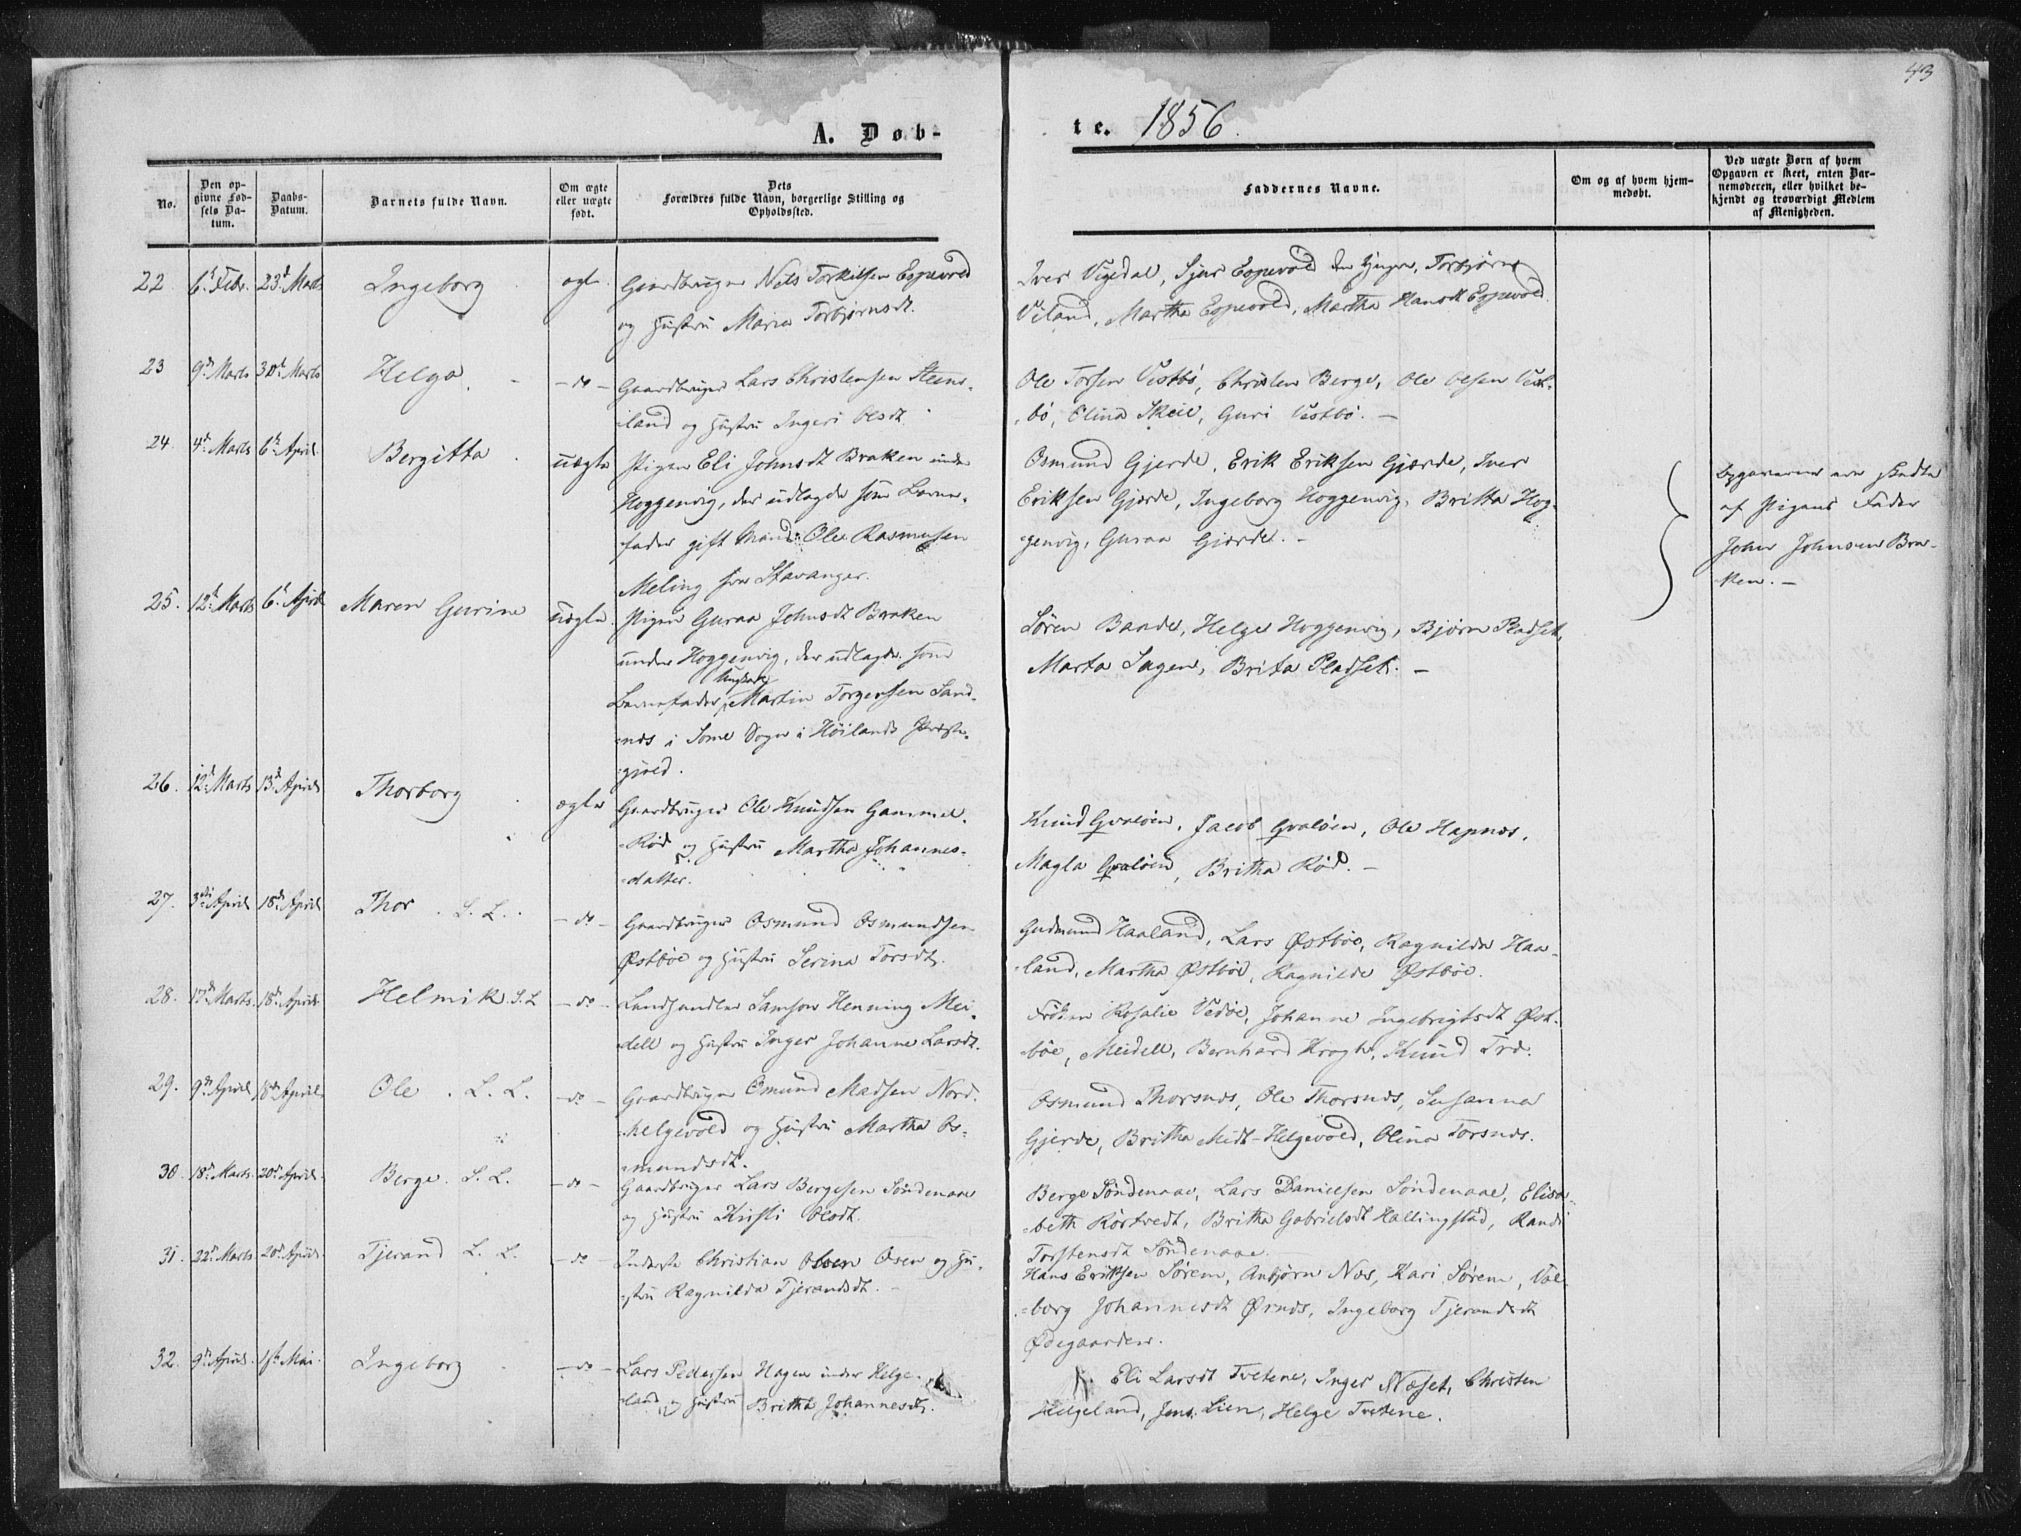 43
A. Døb-
te. 1856.
No.
Den opgivne Fødsels Datum.
Daabs-Datum.
Barnets fulde Navn.
Om ægte eller uægte født.
Dets Forældres fulde Navn, borgerlige Stilling og Opholdssted.
Faddernes Navne.
Om og af hvem hjemmedøbt.
Ved uægte Børn af hvem Opgaven er skeet, enten Barnemoderen, eller hvilket bekjendt og troværdigt Medlem af Menigheden.
22 6t Febr. 23d Marts Ingeborg ægte Gaardbruger Nils Torkilsen Espevold
og Hustru Maria Torbjørnsdt.
Iver Vigedal, Sjur Espevold den yngre, Torbjørn
Viland, Martha Espevold, Martha Hansdt Espevold.
23 9d Marts 30d Marts Helga - do - Gaardbruger Lars Christensen Steens-
land og Hustru Ingeri Olsdt.
Ole Torsen Vestbø, Christen Berge, Ole Olsen Vest-
bø, Elina Skeie, Guri Vestbø. -
24. 4d Marts 6te April Bergitta uægte Pigen Eli Johnsdt Braken under
Hoggenvig, der udlagde som Barne-
fader gift Mand Ole Rasmusen
Meling fra Stavanger.
Osmund Gjerde, Erik Eriksen Gjærde, Iver
Eriksen Gjærde, Ingeborg Hoggenvig, Britta Hog-
genvig, Guraa Gjærde. -
Opgaverne ere skedte
af Pigens Fader
John Johnsen Bra-
ken. -
25. 12d Marts 6t April Maren Gurine uægte Pigen Guraa Johnsdt Braken
under Hoggenvig, der udlagde som
Ungkarl
Barnefader Martin Torgersen Sand-
næs i Some Sogn i Høilands Præste-
gjeld.
Søren Bande, Helge Hoggenvig, Bjørn Pladset,
Marta Sagen, Brita Pladset. -
26. 12d Marts 13d April Thorborg ægte Gaardbruger Ole Knudsen Gammel-
Rød og Hustru Martha Johannes-
datter.
Knud Qvaløen, Jacob Qvaløen, Ole Hapnæs,
Magla Qvaløen, Britha Rød. -
27. 3die April 18d April Thor. S. L. - do - Gaardbruger Osmund Osmundsen
Østbøe og Hustru Serina Torsdt.
Gudmund Haaland, Lars Østbøe, Ragnilda Haa-
land, Martha Østbøe, Ragnilde Østbøe.
28. 17d Marts 18d April Helmik S. L - do - Landhandler Samson Henning Mei-
dell og Hustru Inger Johanne Larsdt.
Frøken Rosalie Vedøe, Johanne Ingebrigtsdt Øst-
bøe, Meidell, Bernhard Krogh, Knud Træ.
29. 9de April 18de April Ole. L. L. - do - Gaardbruger Omund Madsen Nord-
helgevold og Hustru Martha Os-
mundsdt.
Osmund Thorsnæs, Ole Thorsnæs, Susanna
Gjerde, Britha Midt-Helgevold, Olina Torsnæs.
30. 18d Marts 20d April Berge. S. L. - do - Gaardbruger Lars Bergesen Søndenaae
og Hustru Kirsti Olsdt.
Berge Søndenaae, Lars Danielsen Søndenaae, Elisa-
beth Rørtvedt, Britha Gabrielsdt Hallingstad, Randi
Torstensdt Søndenaae.
31. 22d Marts 20d April Tjerand L. L. - do - Inderste Christian Olsen Osen og Hu-
stru Ragnilda Tjerandsdt. -
Hans Eriksen Sørem, Anbjørn Næs, Kari Sørem, Val-
borg Johannesdt Ørnæs, Ingeborg Tjerandsdt
Ødegaarden.
32. 9de April 1ste Mai. Ingeborg - do - Lars Pedersen Hagen under Helge-
land og Hustru Britha Johannesdt.
Eli Larsdt Tvetene, Inger Næset, Christen
Helgeland, Jens Lien, Helge Tvetene.